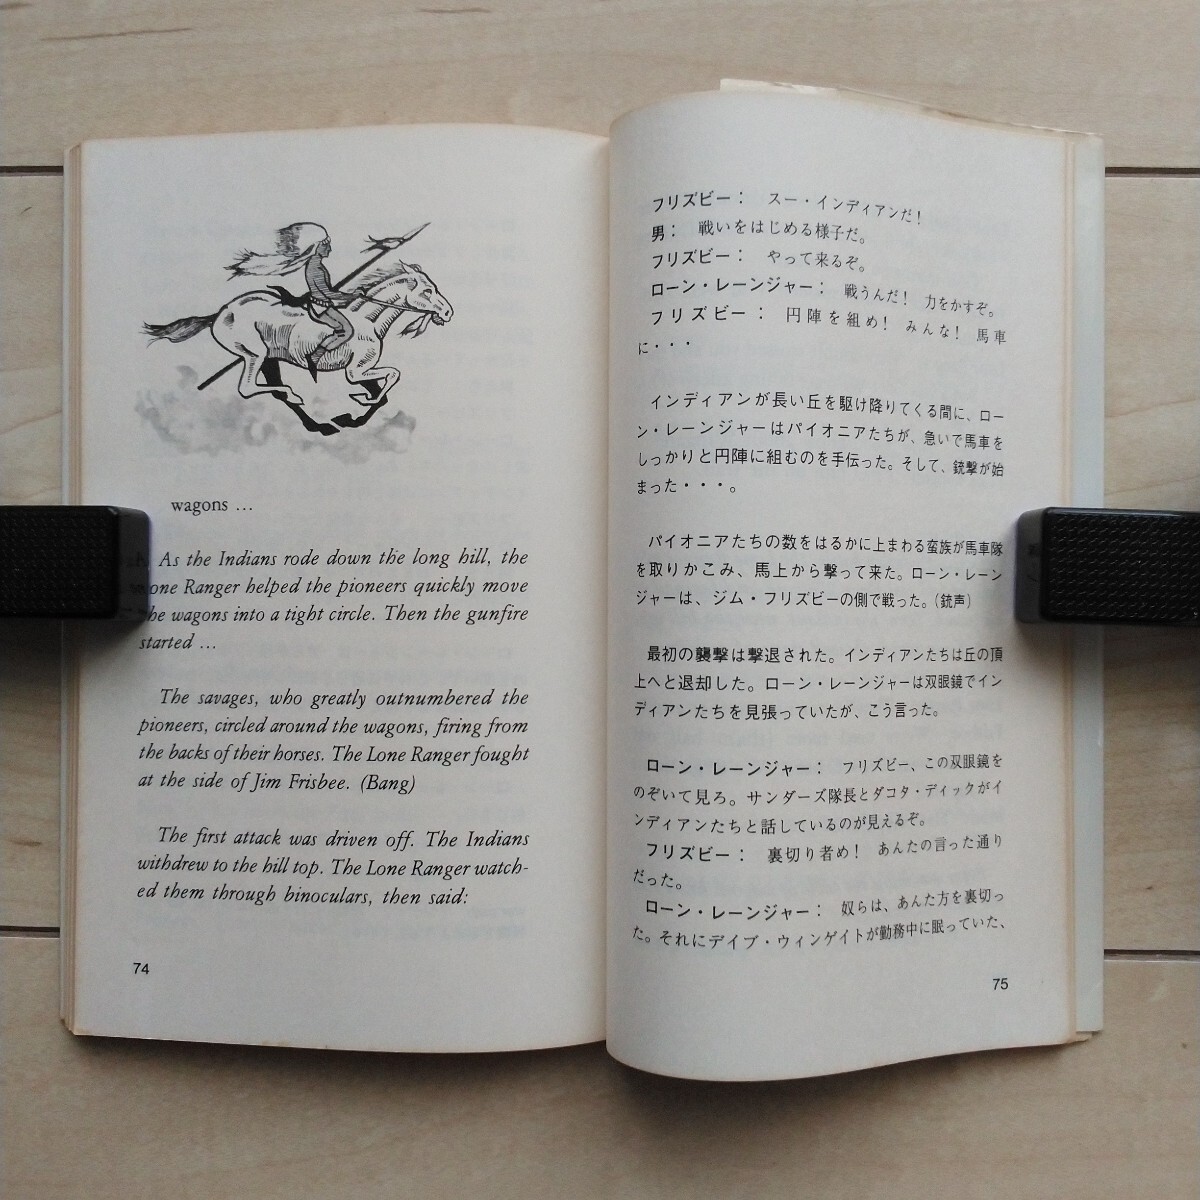 wagons ...
As the Indians rode down the long hill, the
one Ranger helped the pioneers quickly move
the wagons into a tight circle. Then the gunfire
started ...
The savages, who greatly outnumbered the
pioneers, circled around the wagons, firing from
the backs of their horses. The Lone Ranger fought
at the side of Jim Frisbee. (Bang)
The first attack was driven off. The Indians
withdrew to the hill top. The Lone Ranger watch-
ed them through binoculars, then said:
74
フリズビー： スー・インディアンだ！
男： 戦いをはじめる様子だ。
フリズビー： やって来るぞ。
ローン・レーンジャー： 戦うんだ！ 力をかすぞ。
フリズビー： 円陣を組め！ みんな！ 馬車
に・・・
インディアンが長い丘を駆け降りてくる間に、ロー
ン・レーンジャーはパイオニアたちが、急いで馬車を
しっかりと円陣に組むのを手伝った。そして、銃撃が始
まった・・・。
パイオニアたちの数をはるかに上まわる蛮族が馬車隊
を取りかこみ、馬上から撃って来た。ローン・レーン
ジャーは、ジム・フリズビーの側で戦った。（銃声）
最初の襲撃は撃退された。インディアンたちは丘の頂
上へと退却した。ローン・レーンジャーは双眼鏡でイン
ディアンたちを見張っていたが、こう言った。
ローン・レーンジャー： フリズビー、この双眼鏡を
のぞいて見ろ。サンダーズ隊長とダコタ・ディックがイ
ンディアンたちと話しているのが見えるぞ。
フリズビー： 裏切り者め！ あんたの言った通り
だった。
ローン・レーンジャー： 奴らは、あんた方を裏切っ
た。それにデイブ・ウィンゲイトが勤務中に眠っていた、
75